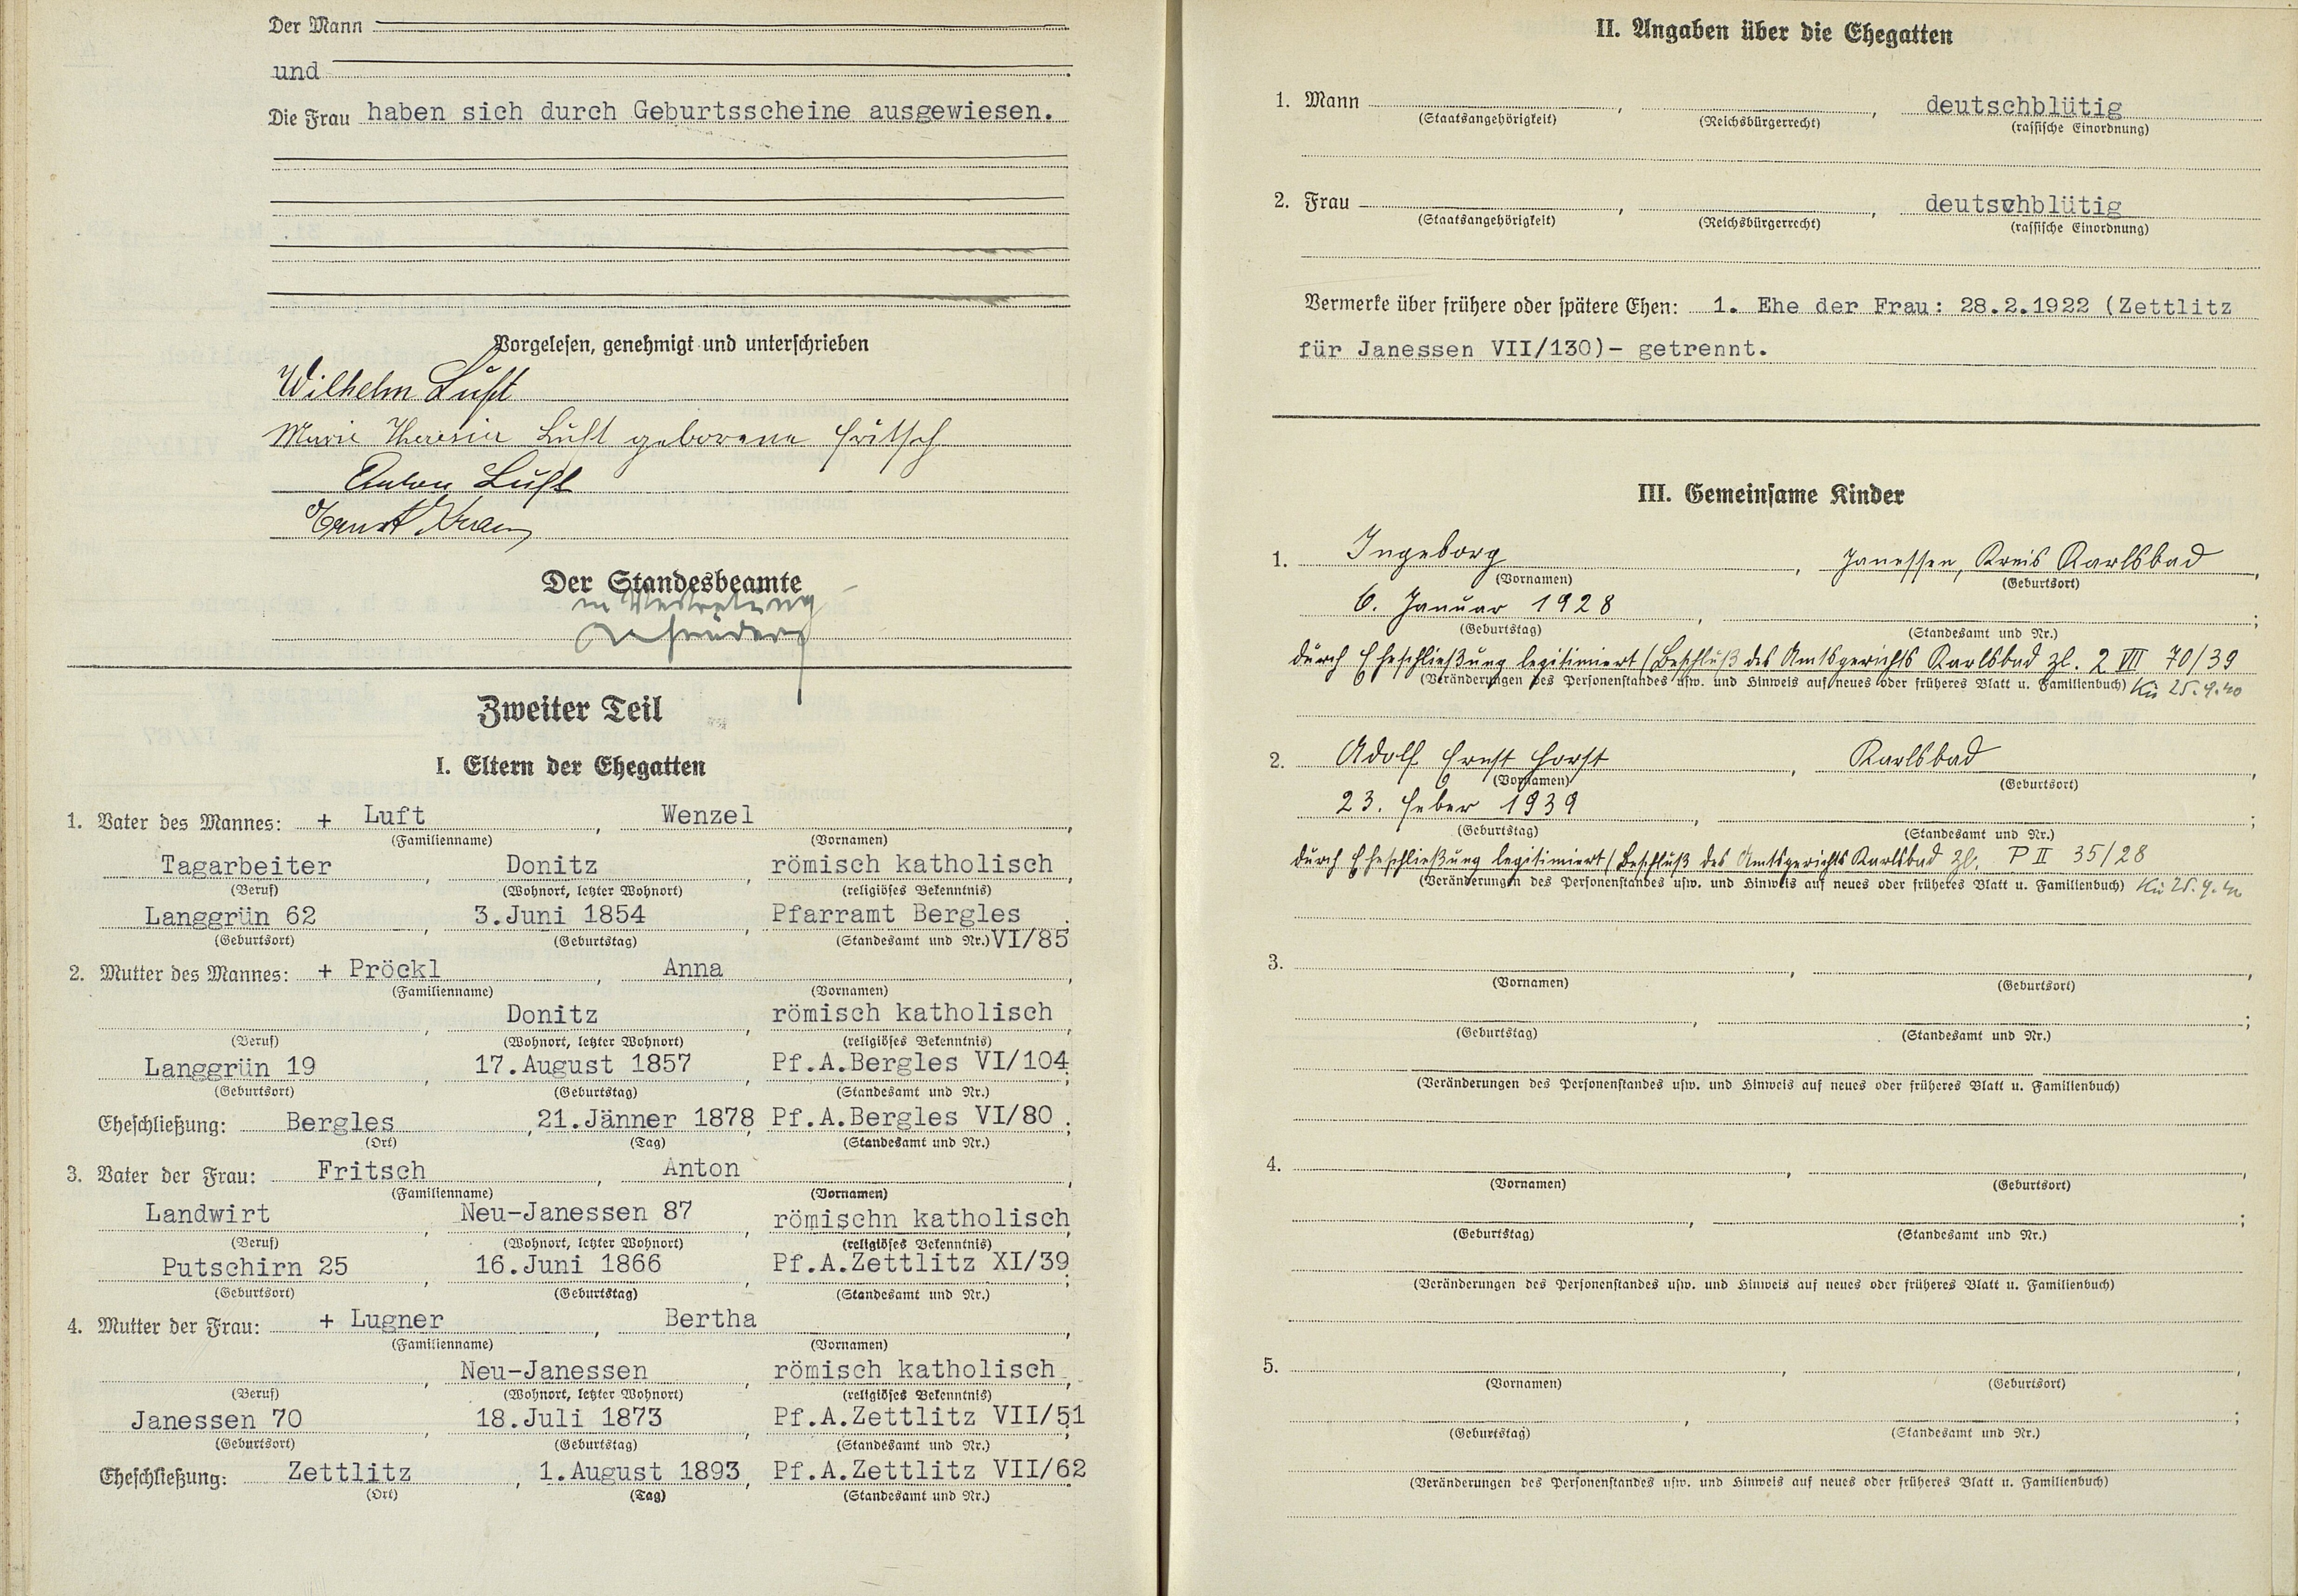 Der Mann
und
Die Frau haben sich durch Geburtsscheine ausgewiesen.
Vorgelesen, genehmigt und unterschrieben
Wilhelm Luft
Marie Theresia Luft geborene Fritsch
Anton Luft
Ernst
Der Standesbeamte
in Vertretung
Zweiter Teil
I. Eltern der Ehegatten
1. Vater des Mannes: + Luft, Wenzel,
(Familienname) (Vornamen)
Tagarbeiter, Donitz, römisch katholisch,
(Beruf) (Wohnort, letzter Wohnort) (religiöses Bekenntnis)
Langgrün 62, 3.Juni 1854, Pfarramt Bergles;
(Geburtsort) (Geburtstag) (Standesamt und Nr.) VI/85
2. Mutter des Mannes: + Pröckl, Anna,
(Familienname) (Vornamen)
, Donitz, römisch katholisch,
(Beruf) (Wohnort, letzter Wohnort) (religiöses Bekenntnis)
Langgrün 19, 17.August 1857, Pf.A.Bergles VI/104;
(Geburtsort) (Geburtstag) (Standesamt und Nr.)
Eheschließung: Bergles, 21.Jänner 1878, Pf.A.Bergles VI/80;
(Ort) (Tag) (Standesamt und Nr.)
3. Vater der Frau: Fritsch, Anton,
(Familienname) (Vornamen)
Landwirt, Neu-Janessen 87, römischn katholisch,
(Beruf) (Wohnort, letzter Wohnort) (religiöses Bekenntnis)
Putschirn 25, 16.Juni 1866, Pf.A.Zettlitz XI/39;
(Geburtsort) (Geburtstag) (Standesamt und Nr.)
4. Mutter der Frau: + Lugner, Bertha,
(Familienname) (Vornamen)
, Neu-Janessen, römisch katholisch,
(Beruf) (Wohnort, letzter Wohnort) (religiöses Bekenntnis)
Janessen 70, 18.Juli 1873, Pf.A.Zettlitz VII/51;
(Geburtsort) (Geburtstag) (Standesamt und Nr.)
Eheschließung: Zettlitz, 1.August 1893, Pf.A.Zettlitz VII/62
(Ort) (Tag) (Standesamt und Nr.)
II. Angaben über die Ehegatten
1. Mann , , deutschblütig
(Staatsangehörigkeit) (Reichsbürgerrecht) (rassische Einordnung)
2. Frau , , deutschblütig
(Staatsangehörigkeit) (Reichsbürgerrecht) (rassische Einordnung)
Vermerke über frühere oder spätere Ehen: 1. Ehe der Frau: 28.2.1922 (Zettlitz
für Janessen VII/130)- getrennt.
III. Gemeinsame Kinder
1. Ingeborg, Janessen, Kreis Karlsbad,
(Vornamen) (Geburtsort)
6. Januar 1928, ;
(Geburtstag) (Standesamt und Nr.)
durch Eheschließung legitimiert (Beschluß des Amtsgerichts Karlsbad Zl. 2 VII 70/39
(Veränderungen des Personenstandes usw. und Hinweis auf neues oder früheres Blatt u. Familienbuch) Kü 25.9.40
2. Adolf Ernst Horst, Karlsbad,
(Vornamen) (Geburtsort)
23. Feber 1939, ;
(Geburtstag) (Standesamt und Nr.)
durch Eheschließung legitimiert (Beschluß des Amtsgerichts Karlsbad Zl. P II 35/28
(Veränderungen des Personenstandes usw. und Hinweis auf neues oder früheres Blatt u. Familienbuch) Kü 25.9.40
3. , ,
(Vornamen) (Geburtsort)
, ;
(Geburtstag) (Standesamt und Nr.)
(Veränderungen des Personenstandes usw. und Hinweis auf neues oder früheres Blatt u. Familienbuch)
4. , ,
(Vornamen) (Geburtsort)
, ;
(Geburtstag) (Standesamt und Nr.)
(Veränderungen des Personenstandes usw. und Hinweis auf neues oder früheres Blatt u. Familienbuch)
5. , ,
(Vornamen) (Geburtsort)
, ;
(Geburtstag) (Standesamt und Nr.)
(Veränderungen des Personenstandes usw. und Hinweis auf neues oder früheres Blatt u. Familienbuch)